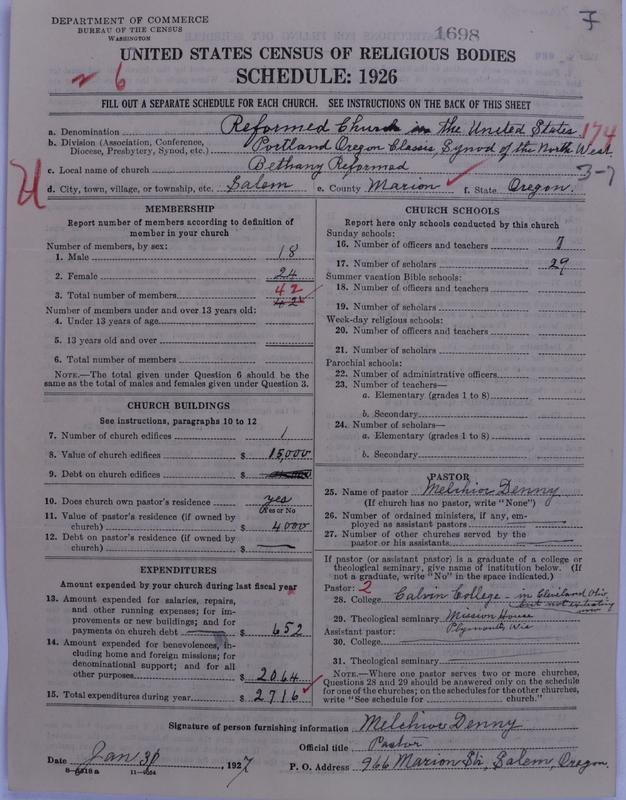 DEPARTMENT OF COMMERCE
BUREAU OF THE CENSUS
WASHINGTON
1698
7
UNITED STATES CENSUS OF RELIGIOUS BODIES
SCHEDULE: 1926
6
FILL OUT A SEPARATE SCHEDULE FOR EACH CHURCH. SEE INSTRUCTIONS ON THE BACK OF THIS SHEET
a. Denomination Reformed Church in the United States 174
b. Division (Association, Conference, Diocese, Presbytery, Synod, etc.) Portland Oregon Classis, Synod of the North West.
c. Local name of church Bethany Reformed 3-7
d. City, town, village, or township, etc. Salem e. County Marion f. State Oregon.
MEMBERSHIP
Report number of members according to definition of
member in your church
Number of members, by sex:
1. Male 18
2. Female 24
42
3. Total number of members 42
Number of members under and over 13 years old:
4. Under 13 years of age
5. 13 years old and over
6. Total number of members
NOTE.—The total given under Question 6 should be
same as the total of males and females given under Question 3.
CHURCH BUILDINGS
See instructions, paragraphs 10 to 12
7. Number of church edifices 1
8. Value of church edifices $ 15,000
9. Debt on church edifices $
10. Does church own pastor's residence yes
(Yes or No
11. Value of pastor's residence (if owned by
church) $ 4000
12. Debt on pastor's residence (if owned by
church) $
EXPENDITURES
Amount expended by your church during last fiscal year
13. Amount expended for salaries, repairs,
and other running expenses; for im-
provements or new buildings; and for
payments on church debt $ 652
14. Amount expended for benevolences, in-
cluding home and foreign missions; for
denominational support; and for all
other purposes $ 2064
15. Total expenditures during year $ 2716
CHURCH SCHOOLS
Report here only schools conducted by this church
Sunday schools:
16. Number of officers and teachers 7
17. Number of scholars 29
Summer vacation Bible schools:
18. Number of officers and teachers
19. Number of scholars
Week-day religious schools:
20. Number of officers and teachers
21. Number of scholars
Parochial schools:
22. Number of administrative officers
23. Number of teachers—
a. Elementary (grades 1 to 8)
b. Secondary
24. Number of scholars—
a. Elementary (grades 1 to 8)
b. Secondary
PASTOR
25. Name of pastor Melchior Denny
(If church has no pastor, write "None")
26. Number of ordained ministers, if any, em-
ployed as assistant pastors
27. Number of other churches served by the
pastor or his assistants
If pastor (or assistant pastor) is a graduate of a college or
theological seminary, give name of institution below. (If
not a graduate, write "No" in the space indicated.)
Pastor: 2
28. College Calvin College - in Cleveland Ohio
but not existing
now
29. Theological seminary Mission House
Plymouth, Wis
Assistant pastor:
30. College
31. Theological seminary
NOTE.—Where one pastor serves two or more churches,
Questions 28 and 29 should be answered only on the schedule
for one of the churches; on the schedules for the other churches,
write "See schedule for church."
Signature of person furnishing information Melchior Denny
Official title Pastor
Date Jan 31, 1927 P. O. Address 966 Marion St, Salem, Oregon.
8—5518 a 11—9564